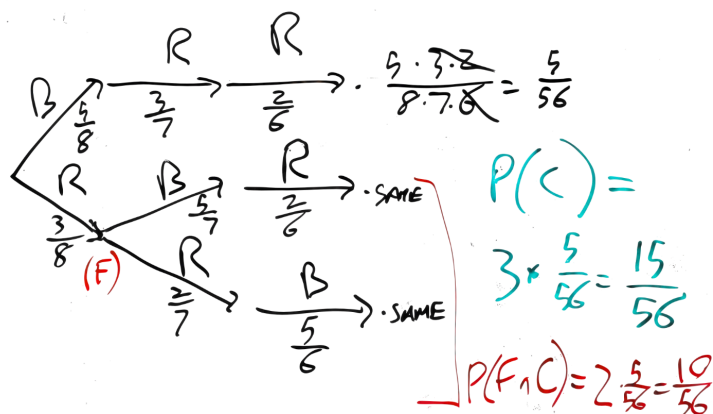 B 5/8 R 3/7 R 2/6 · 5·3·2/8·7·6 = 5/56
R 3/8 B 5/7 R 2/6 · SAME
(F)
R 2/7 B 5/6 · SAME
P(C) =
3 * 5/56 = 15/56
P(F∩C) = 2·5/56 = 10/56